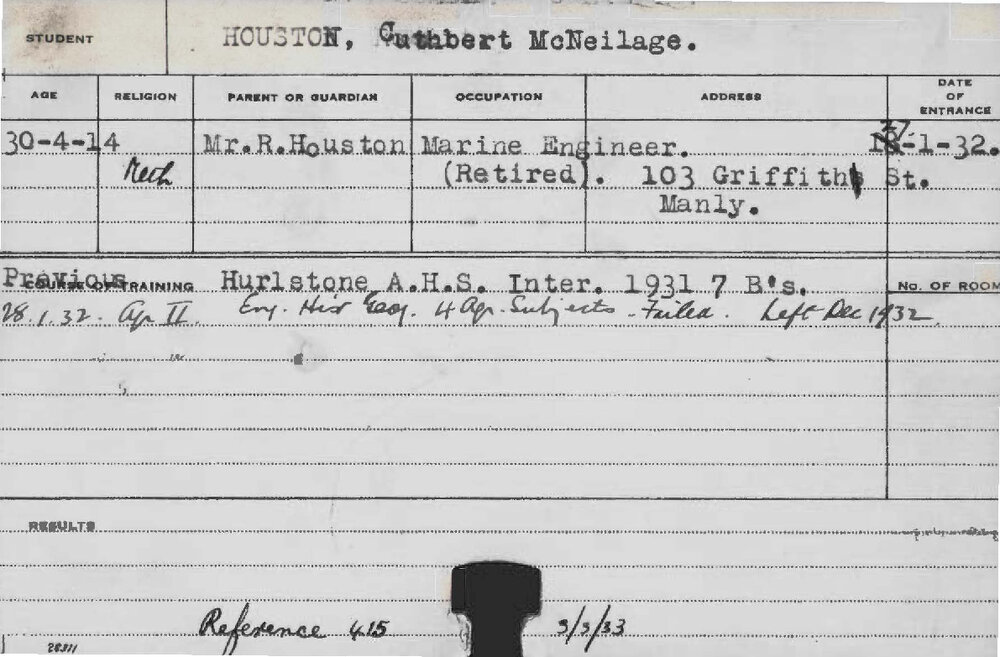 STUDENT HOUSTON, Cuthbert McNeilage.
AGE RELIGION PARENT OR GUARDIAN OCCUPATION ADDRESS DATE OF ENTRANCE
30-4-14 Mr.R.Houston Marine Engineer. -1-32.
Meth (Retired). 103 Griffith St.
Manly.
Previous COURSE OF TRAINING Hurlstone A.H.S. Inter. 1931 7 B's. No. OF ROOM
28.1.32. Ag II Eng. His Geog. 4 Agr. Subjects - Failed. Left Dec 1932
RESULTS
Reference 415 3/3/33